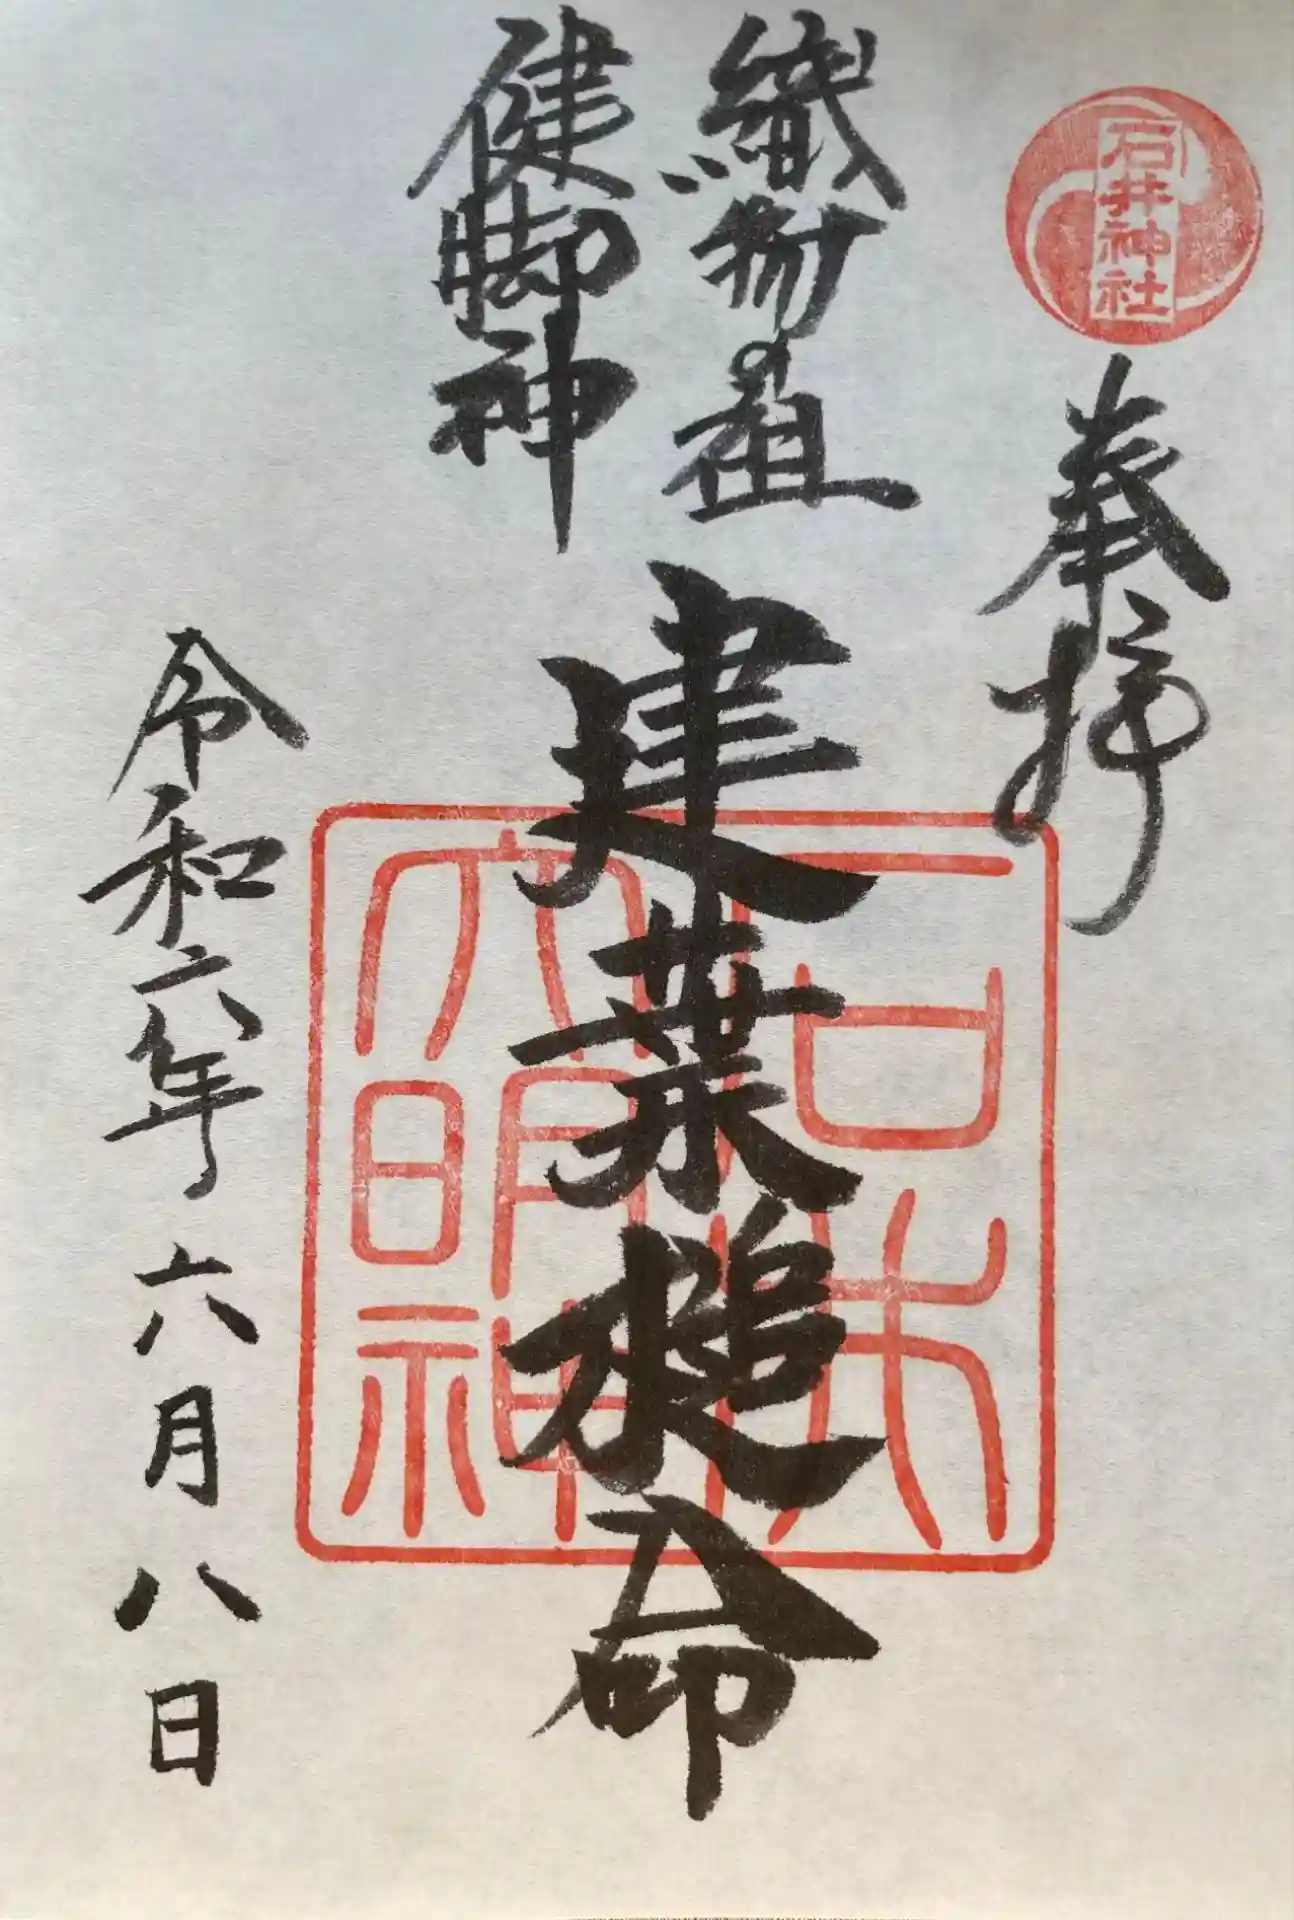 石井神社
奉拝
織物の祖
健脚神
建葉槌命
石井大明神
令和六年
六月八日